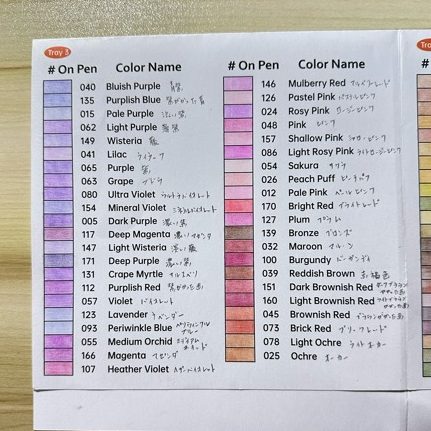 Tray 3
# On Pen Color Name
040 Bluish Purple 青紫
135 Purplish Blue 紫がかった青
015 Pale Purple 淡い紫
062 Light Purple 薄紫
149 Wisteria 藤
041 Lilac ライラック
065 Purple 紫
063 Grape ブドウ
080 Ultra Violet ウルトラバイオレット
154 Mineral Violet ミネラルバイオレット
005 Dark Purple 濃い紫
117 Deep Magenta 濃いマゼンタ
147 Light Wisteria 淡い藤
171 Deep Purple 濃い紫
131 Crape Myrtle サルスベリ
112 Purplish Red 紫がかった赤
057 Violet バイオレット
123 Lavender ラベンダー
093 Periwinkle Blue ペリウィンクルブルー
055 Medium Orchid ミディアムオーキッド
166 Magenta マゼンタ
107 Heather Violet ヘザーバイオレット
# On Pen Color Name
146 Mulberry Red マルベリーレッド
126 Pastel Pink パステルピンク
024 Rosy Pink ロージーピンク
048 Pink ピンク
157 Shallow Pink シャローピンク
086 Light Rosy Pink ライトロージーピンク
054 Sakura サクラ
026 Peach Puff ピーチパフ
012 Pale Pink ペールピンク
170 Bright Red ブライトレッド
127 Plum プラム
139 Bronze ブロンズ
032 Maroon マルーン
100 Burgundy バーガンディ
039 Reddish Brown 赤褐色
151 Dark Brownish Red ダークブラウンがかった赤
160 Light Brownish Red ライトブラウンがかった赤
045 Brownish Red ブラウンがかった赤
073 Brick Red ブリックレッド
078 Light Ochre ライトオーカー
025 Ochre オーカー